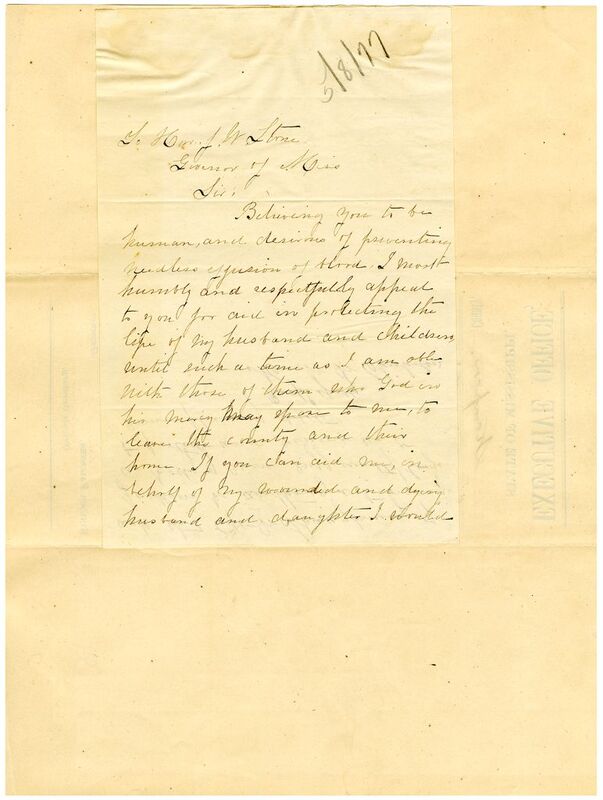 5/8/77
To Hon. J. W. Stone
Govenor of Miss
Sir,
Believing you to be
human, and desirous of preventing
needless efusion of blood, I most
humbly and respectfully appeal
to you for aid in protecting the
life of my husband and children
until such a time as I am able
with those of them who God in
his mercy may spare to me, to
leave the county and their
home. If you can aid me, in
behalf of my wounded and dying
husband and daughter I would
EXECUTIVE OFFICE